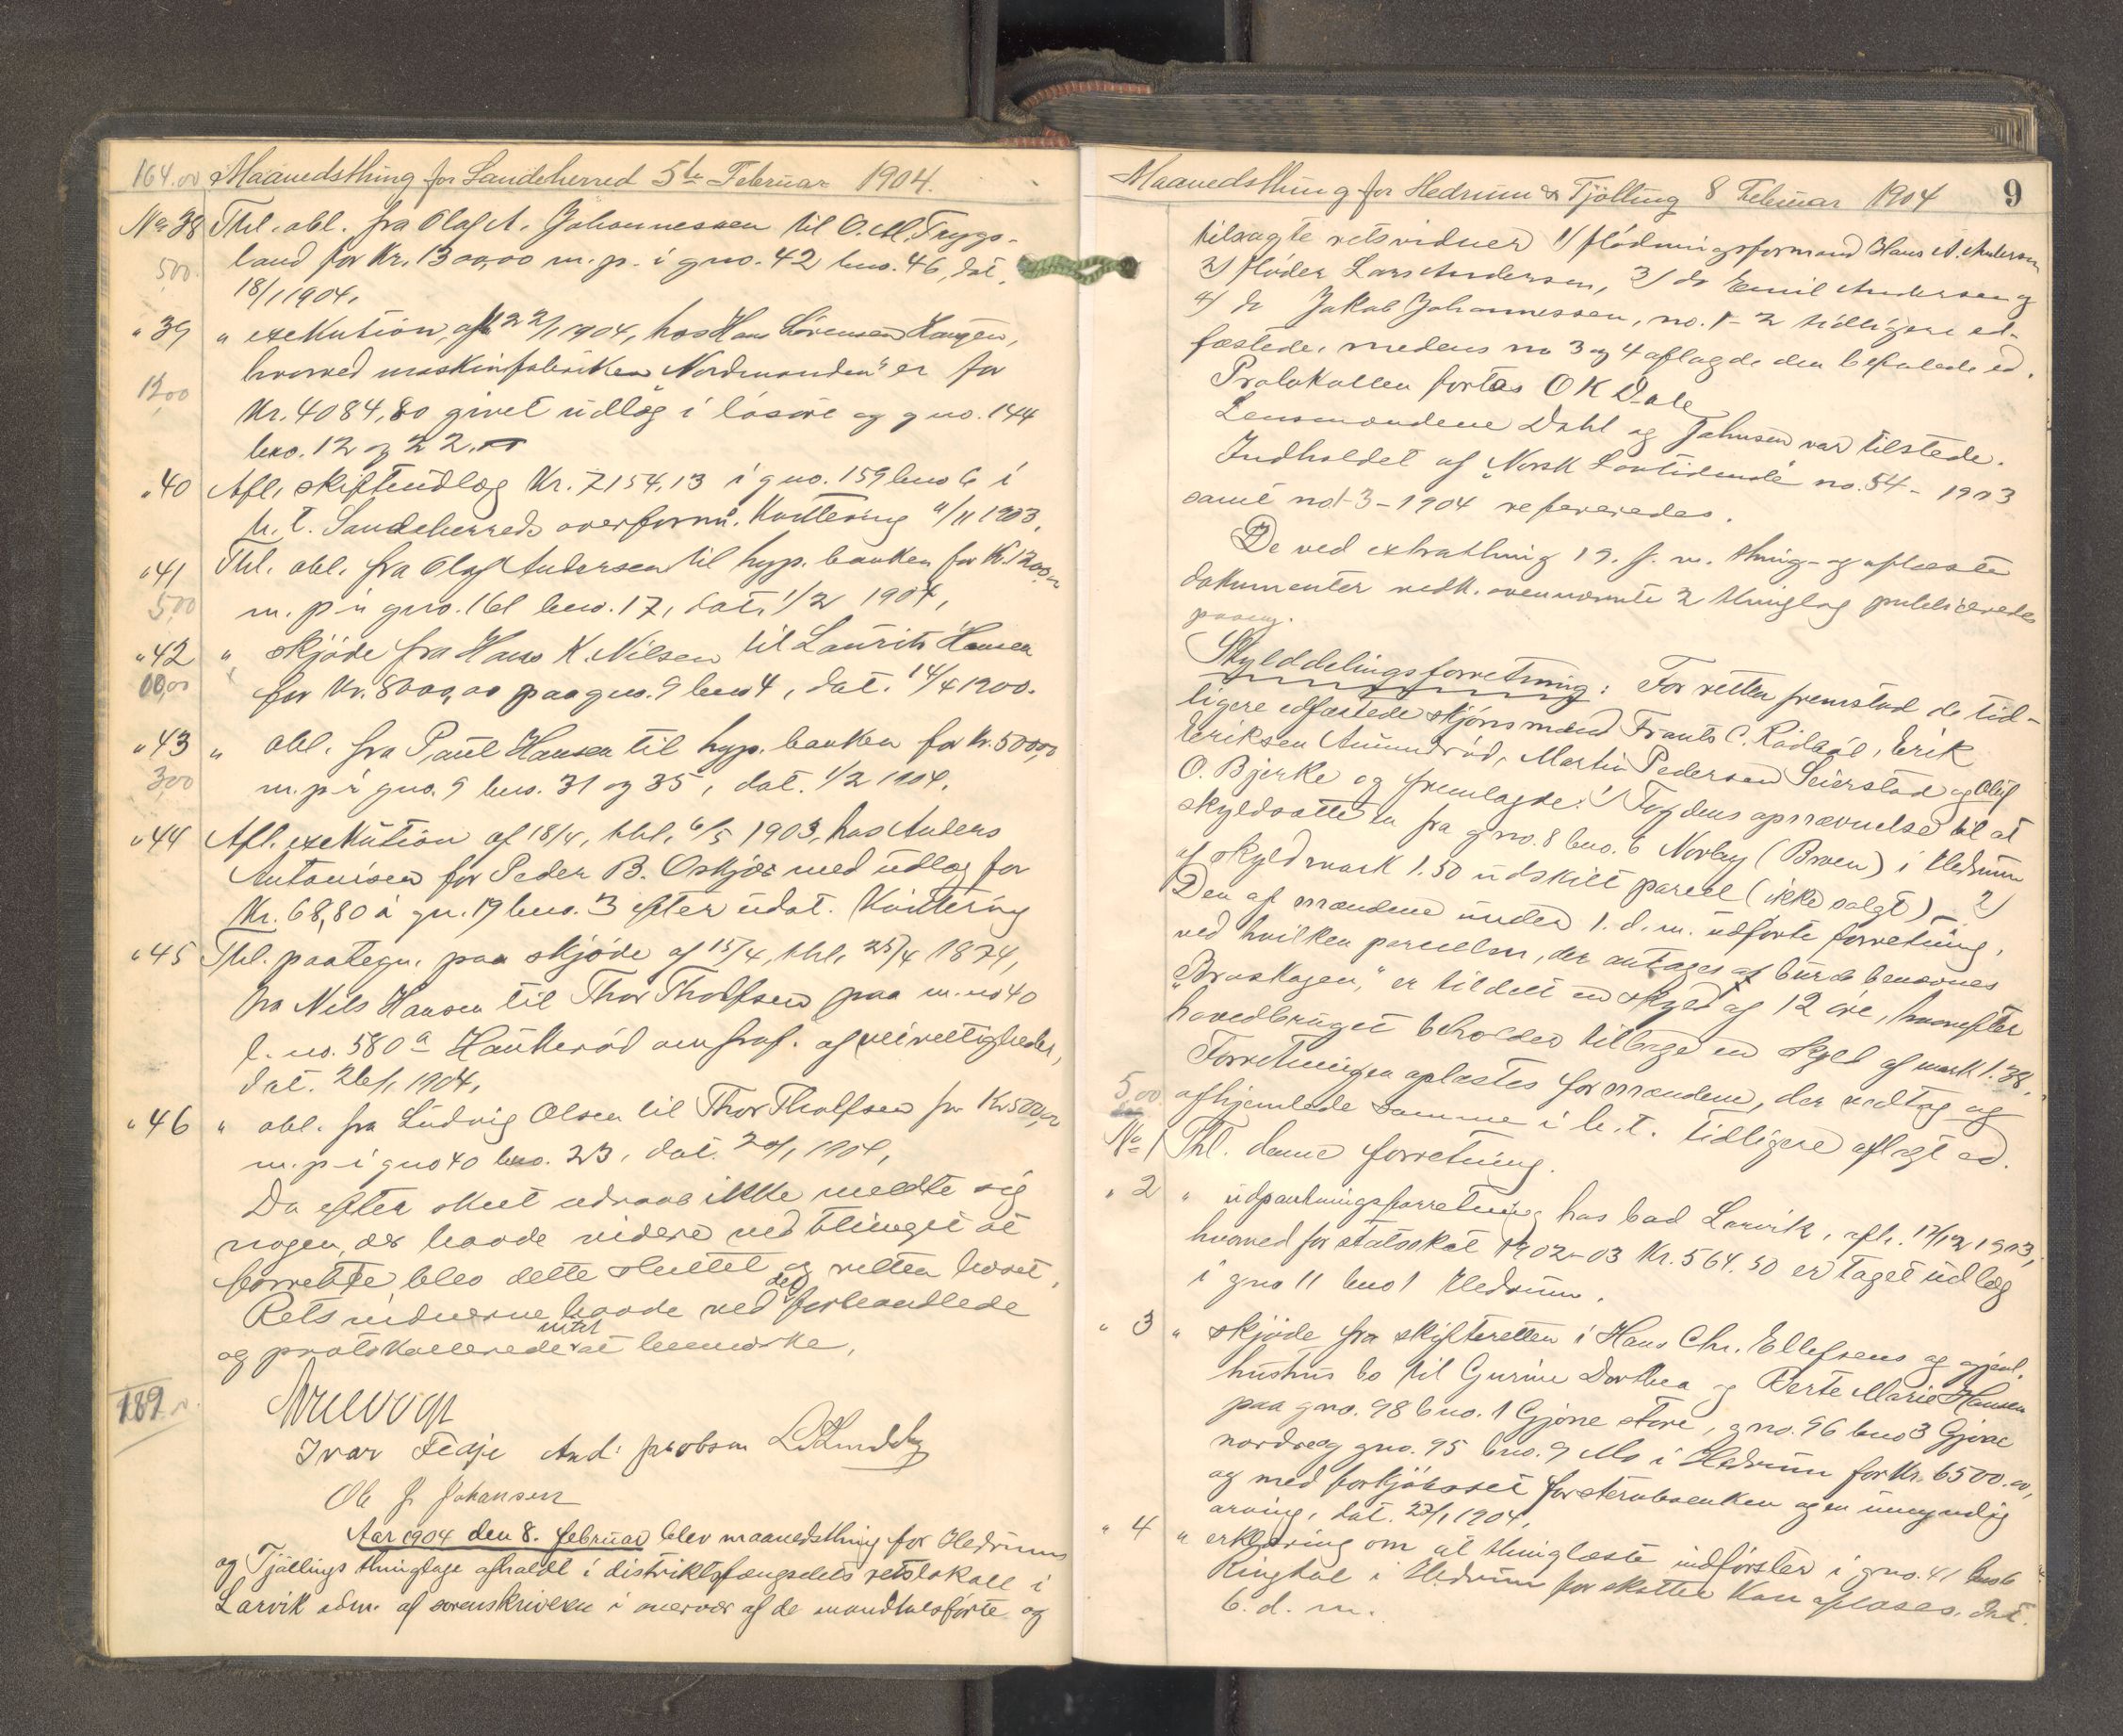 164.00 Maanedsthing for Sandeherred 5te Februar 1904.
No 38 Thl. obl. fra Olaf A. Johannessen til O. M. Trygs-
5,00 land for Kr. 1300,00 m. p. i gno. 42 bno. 46, dat.
18/1 1904.
" 39 " exekution, afh 22/1 1904, hos Hans Sørensen Haugen,
hvorved maskinfabriken "Nordmanden" er for
12,00
Kr. 4084,80 givet udlæg i løsøre og gno. 144
bno. 12 og 22.
" 40 Afl. skifteudlæg Kr. 7154,13 i gno. 159 bno 6 i
h. t. Sandeherreds overform. Kvittering 11/11 1903.
" 41 Thl. obl. fra Olaf Andersen til hyp. banken for Kr. 1200,00
5,00 m. p. i gno. 161 bno. 17, dat. 1/2 1904,
" 42 " skjøde fra Hans K. Nilsen til Laurits Hansen
10,00 for Kr. 8000,00 paa gno. 9 bno 4, dat. 14/4 1900.
" 43 " obl. fra Paul Hansen til hyp. banken for Kr. 500,00
3,00 m. p. i gno. 9 bno. 31 og 35, dat. 1/2 1904.
" 44 Afl. exekution af 18/4, thl. 6/5 1903, hos Anders
Antonisen for Peder B. Oskjær med udlæg for
Kr. 68,80 i gn. 19 bno. 3 efter udat. Kvittering
" 45 Thl. paategn. paa skjøde af 15/4, thl. 25/4 1874,
fra Nils Hansen til Thor Tholfsen paa m. no 40
l. no. 580a Haukerød om fraf. af veirettigheder,
dat. 26/1 1904,
" 46 " obl. fra Ludvig Olsen til Thor Tholfsen for Kr 500,00
m. p. i gno 40 bno. 23, dat. 20/1 1904,
Da efter skeet udraab ikke meldte sig
nogen, der havde videre ved thinget at
forrette, blev dette sluttet og retten hævet.
Retsvidnerne havde ved det forhandlede
og protokollerede intet at bemærke.
189.00
Ivar Fedje And. Jacobsen
Ole J. Johansen
Aar 1904 den 8. februar blev maanedsthing for Hedrums
og Tjøllings thinglage afholdt i distriktsfængselets retslokale i
Larvik adm. af sorenskriveren i overvær af de mandtalsførte og
Maanedsthing for Hedrum & Tjølling 8 Februar 1904 9
tilsagte retsvidner 1/ flødningsformand Hans A. Andersen
2/ fløder Lars Andersen, 3/ do Emil Andersen og
4/ do Jakob Johannessen, no. 1-2 tidligere ed-
fæstede, medens no 3 og 4 aflagde den befalede ed.
Protokollen førtes O K Dale
Lensmændene Dahl og Johnsen var tilstede.
Indholdet af "Norsk Lovtidende" no. 54 - 1903
samt no 1-3-1904 refereredes.
De ved extrathing 19. f. m. thing- og aflæste
dokumenter vedk. ovennævnte 2 thinglag publiceredes
paany.
Skylddelingsforretning: For retten fremstod de tid-
ligere edfæstede skjønsmænd Frants C. Rødbøl, Erik
Eriksen Amundrød, Martin Pedersen Seierstad og Oluf
O. Bjerke og fremlagde: 1/ Fogdens opnævnelse til at
skyldsætte en fra gno. 8 bno. 6 Norby (Broen) i Hedrum
af skyldmark 1.50 udskilt parcel (ikke solgt). 2/
Den af mændene under 1. d. m. udførte forretning,
ved hvilken parcellen, der antages at burde benævnes
"Broskogen," er tildelt en skyld af 12 øre, hvorefter
hovedbruget beholder tilbage en skyld af mark 1.38.
Forretningen oplæstes for mændene, der vedtog og
5,00 afhjemlede samme i h. t. tidligere aflagt ed.
No 1 Thl. denne forretning.
" 2 " udpantningsforretning hos bad Larvik, afh. 17/12 1903,
hvorved for statsskat 1902-03 Kr. 564.50 er taget udlæg
i gno 11 bno 1 Hedrum.
" 3 " skjøde fra skifteretten i Hans Chr. Ellefsens og gjenl.
hustrus bo til Gurine Dorthea og Berte Marie Hansen
paa gno. 98 bno. 1 Gjone store, gno. 96 bno 3 Gjone
nordre og gno. 95 bno. 9 Mo i Hedrum for Kr. 6500.00,
og med forkjøbsret for sterboenken og en umyndig
arving, dat. 27/1 1904,
" 4 " erklæring om at thinglæste udførsler i gno. 41 bno 6
Ringdal i Hedrum for skatter kan aflæses. Dat.
6. d. m.